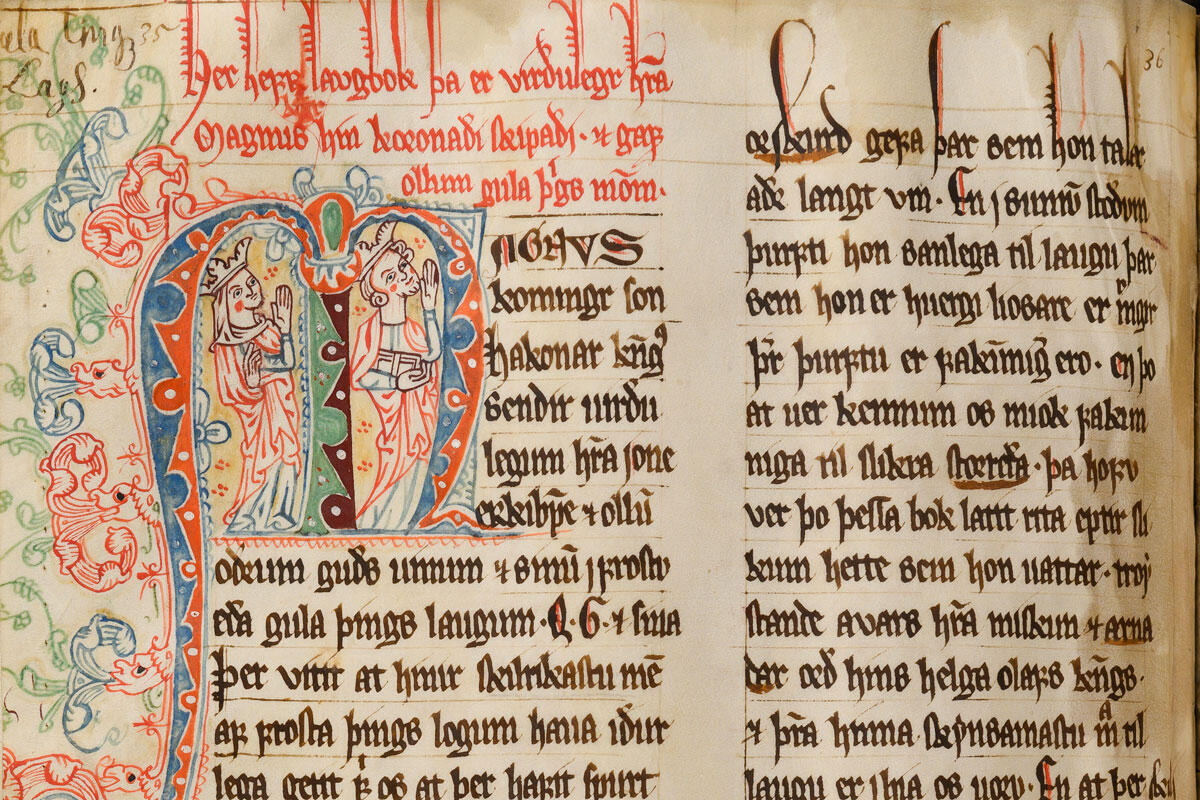 35
Lags.
36
Her hefr laugbok þa er virðulegr hra
Magnus hin koronaði skipaði · ⁊ gaf
ollum gula þgs mom.
AGNVS
konungr son
hakonar kngs
sendir uirðu
legum hra ione
erkibpe ⁊ ollū
oðrum guðs uinum ⁊ sinū j frostu
eða gula þings laugum · Q · G · ⁊ sina
þer vitit at hinir skilrikastu mē
af frosta þings logum haua iður
lega getit f os at þer hafit spurt
gera þar sem hon talar
aðr langt vm · En j sumū stoðum
þurfti hon sanlega til laugu þar
sem hon er huergi liosare er mgir
þr þurftu er fakunnig ero · en þo
at uer kennum os miok fakun
niga til slikra · þa hofu
ver þo þessa bok latit rita eptir sli
kum hette sem hon uattar · troy
stande a vars hra miskun ⁊ arna
dar orð hins helga olafs kngs ·
⁊ þra hinna skynsamastu m til
laugu er j hia os uoru · En at þer